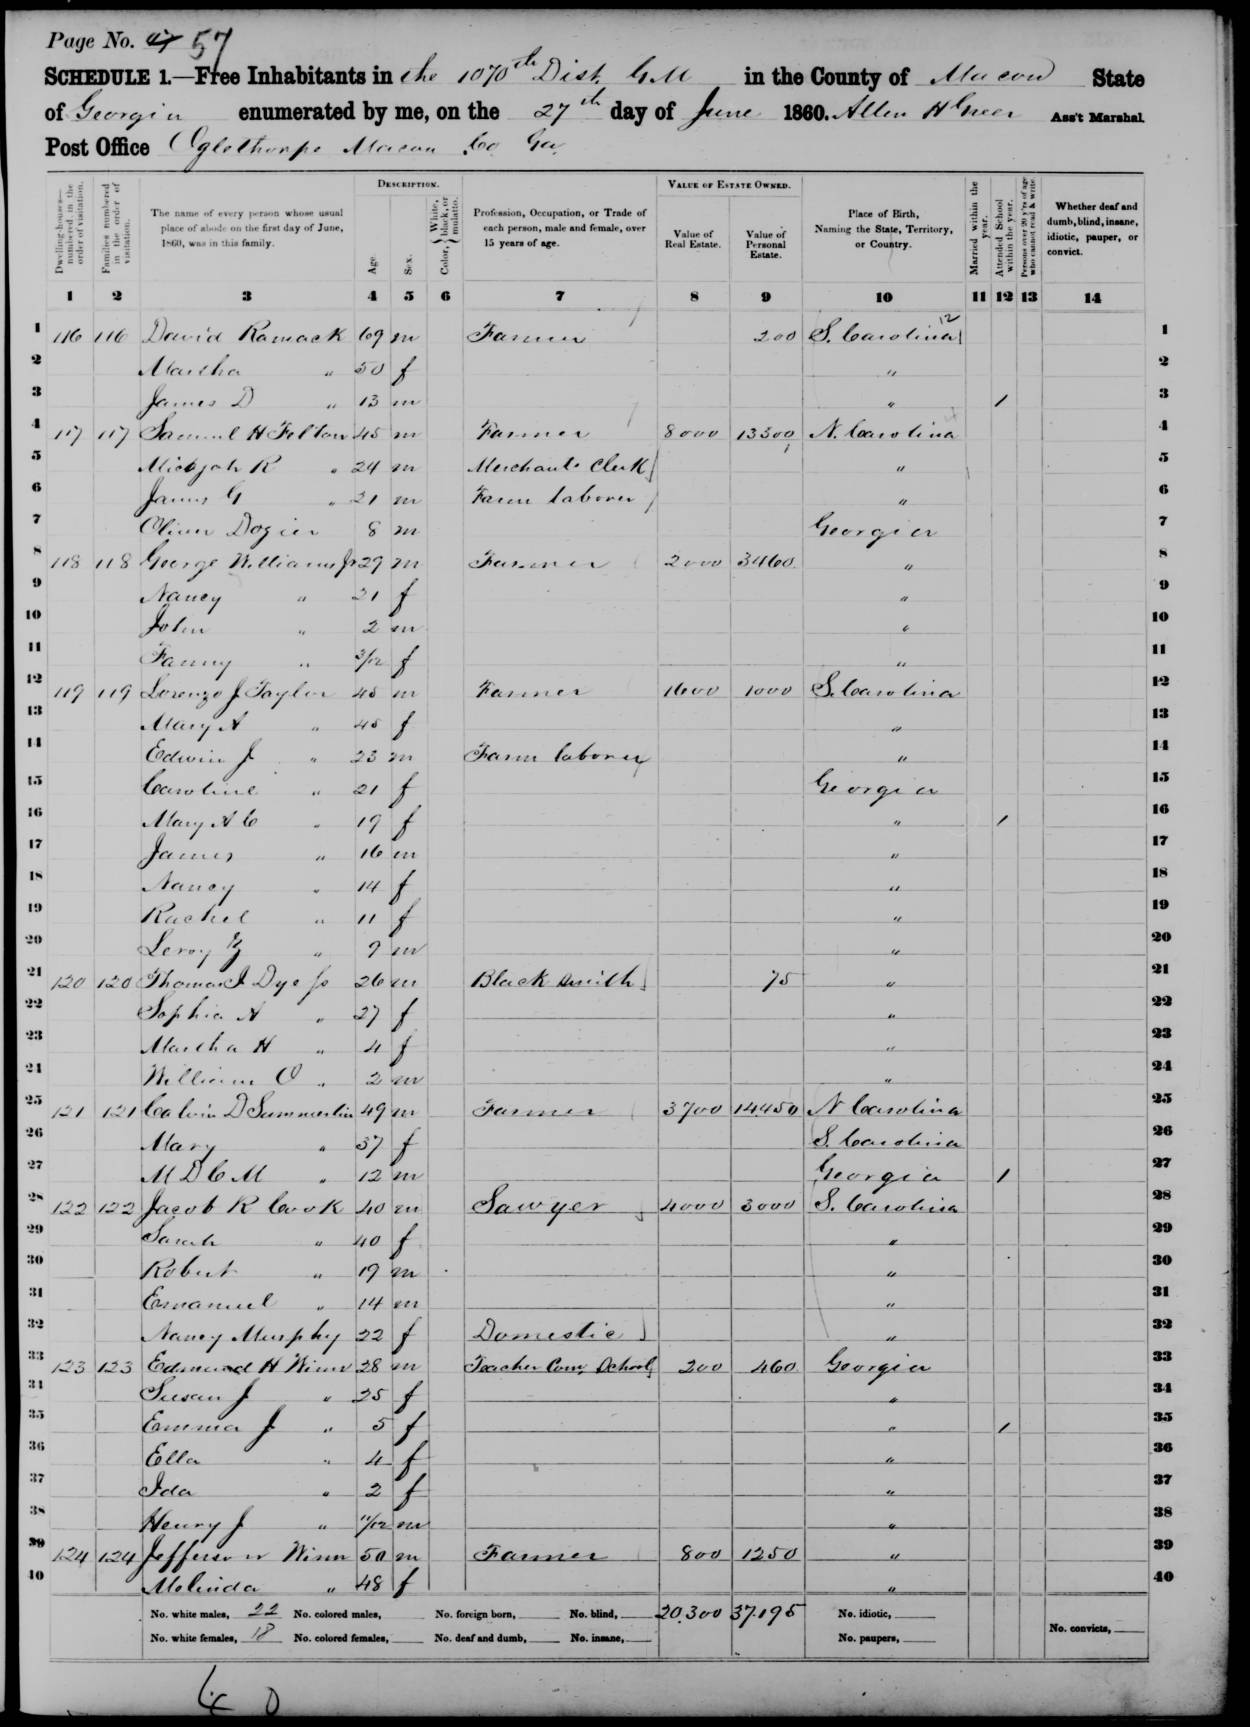 Page No. 57
SCHEDULE 1.—Free Inhabitants in the 1070th Dist. G.M in the County of Macon State
of Georgia enumerated by me, on the 27th day of June 1860. Allen H Greer Ass't Marshal.
Post Office Oglethorpe Macon Co Ga
DESCRIPTION. VALUE OF ESTATE OWNED.
Dwelling-houses—numbered in the order of visitation. Families numbered in the order of visitation. The name of every person whose usual place of abode on the first day of June, 1860, was in this family. Age. Sex. Color, { White, black, or mulatto. Profession, Occupation, or Trade of each person, male and female, over 15 years of age. Value of Real Estate. Value of Personal Estate. Place of Birth, Naming the State, Territory, or Country. Married within the year. Attended School within the year. Persons over 20 y'rs of age who cannot read & write. Whether deaf and dumb, blind, insane, idiotic, pauper, or convict.
1 2 3 4 5 6 7 8 9 10 11 12 13 14
12
1 116 116 David Ramack 69 m Farmer 200 S. Carolina 1
2 Martha " 50 f " 2
3 James D " 13 m " / 3
4 117 117 Samuel H Felton 45 m Farmer 8000 13300 N. Carolina 4
5 Micajah R " 24 m Merchants Clerk " 5
6 James G " 21 m Farm laborer " 6
7 Oliver Dozier 8 m Georgia 7
8 118 118 George Williams Jr 29 m Farmer 2000 3460 " 8
9 Nancy " 21 f " 9
10 John " 2 m " 10
11 Fanny " 3/12 f " 11
12 119 119 Lorenzo J Taylor 45 m Farmer 1600 1000 S. Carolina 12
13 Mary A " 45 f " 13
14 Edwin J " 23 m Farm laborer " 14
15 Caroline " 21 f Georgia 15
16 Mary A C " 19 f " / 16
17 James " 16 m " 17
18 Nancy " 14 f " 18
19 Rachel " 11 f " 19
20 Leroy " 9 m " 20
21 120 120 Thomas J Dye Jr 26 m Black Smith 75 " 21
22 Sophia A " 27 f " 22
23 Martha H " 4 f " 23
24 William O " 2 m " 24
25 121 121 Calvin D Summerlin 49 m Farmer 3700 14450 N Carolina 25
26 Mary " 37 f S. Carolina 26
27 M D C M " 12 m Georgia / 27
28 122 122 Jacob R Cook 40 m Sawyer 4000 3000 S. Carolina 28
29 Sarah " 40 f " 29
30 Robert " 19 m " 30
31 Emanuel " 14 m " 31
32 Nancy Murphy 22 f Domestic " 32
33 123 123 Edmund H Winn 28 m Teacher Com. School 200 460 Georgia 33
34 Susan J " 25 f " 34
35 Emma J " 5 f " / 35
36 Ella " 4 f " 36
37 Ida " 2 f " 37
38 Henry J " 11/12 m " 38
39 124 124 Jefferson Winn 50 m Farmer 800 1250 " 39
40 Melinda " 48 f " 40
No. white males, 22 No. colored males, No. foreign born, No. blind, 20,300 37,195 No. idiotic,
No. white females, 18 No. colored females, No. deaf and dumb, No. insane, No. paupers, No. convicts,
40